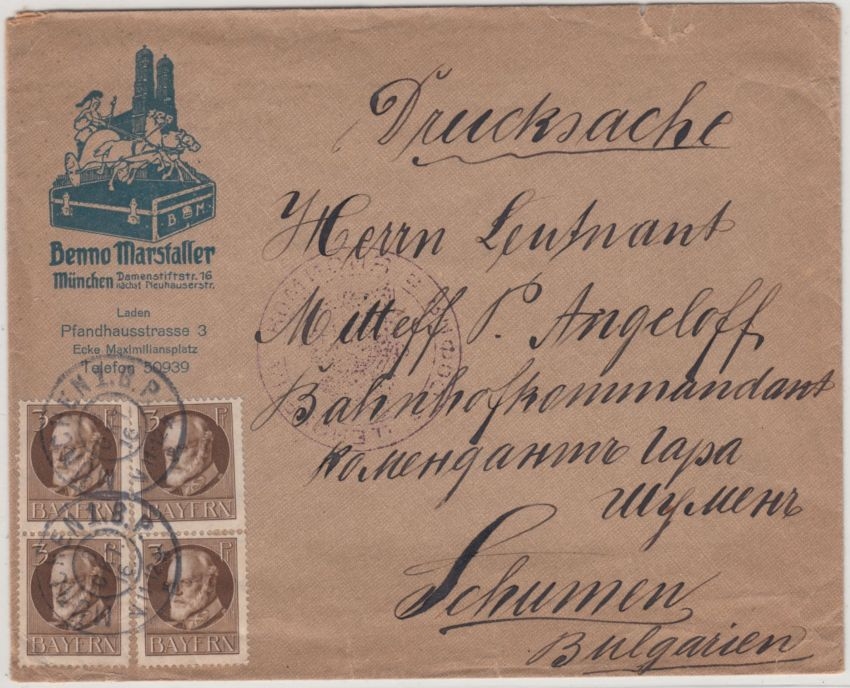 B M
Benno Marstaller
München Damenstiftstr. 16
nächst Neuhauserstr.
Laden
Pfandhausstrasse 3
Ecke Maximiliansplatz
Telefon 50939
Drucksache
Herrn Leutnant
Mitteff P. Angeloff
Bahnhofkommandant
комендантъ Гара
Шуменъ
Schumen
Bulgarien
MÜNCHEN 1. B. P.
3 P
BAYERN
3 P
BAYERN
MÜNCHEN 1. B. P.
3 P
BAYERN
3 P
BAYERN